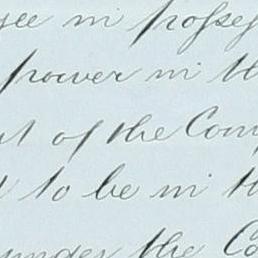 see in posse
power in th
t of the Com
to be in th
under the Co